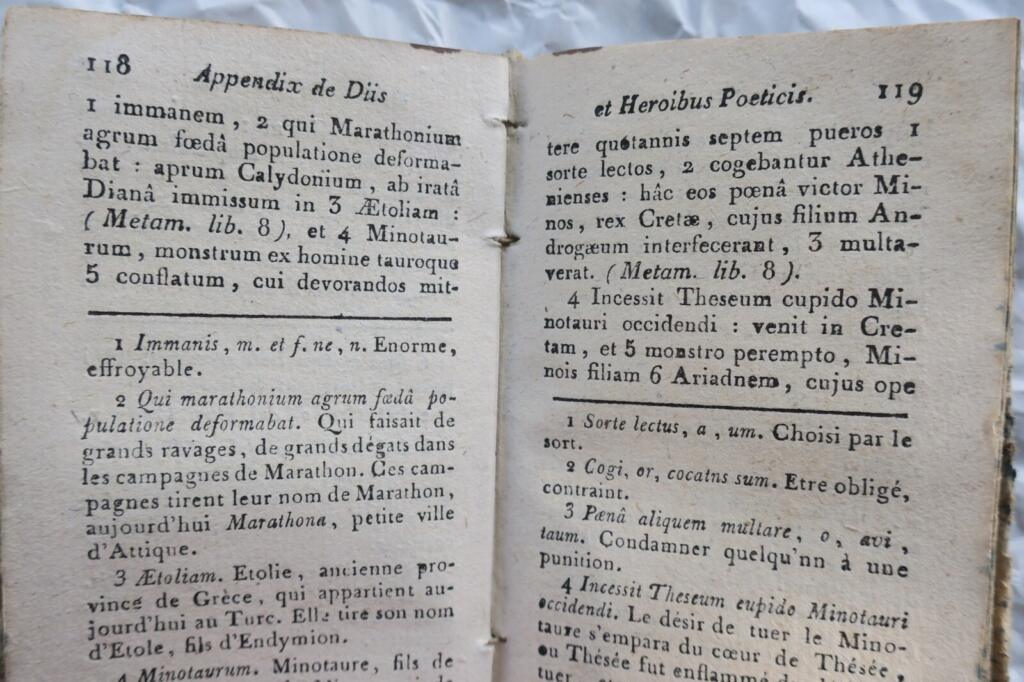 118
Appendix de Diis
1 immanem , 2 qui Marathonium
agrum fœdâ populatione deforma-
bat : aprum Calydonium , ab iratâ
Dianâ immissum in 3 Ætoliam :
( Metam. lib. 8 ), et 4 Minotau-
rum , monstrum ex homine tauroque
5 conflatum , cui devorandos mit-
1 Immanis , m. et f. ne , n. Enorme,
effroyable.
2 Qui marathonium agrum fœdâ po-
pulatione deformabat. Qui faisait de
grands ravages , de grands dégats dans
les campagnes de Marathon. Ces cam-
pagnes tirent leur nom de Marathon,
aujourd'hui Marathona , petite ville
d'Attique.
3 Ætoliam. Etolie , ancienne pro-
vince de Grèce , qui appartient au-
jourd'hui au Turc. Elle tire son nom
d'Etole , fils d'Endymion.
4 Minotaurum. Minotaure , fils de
et Heroibus Poeticis.
119
tere quotannis septem pueros 1
sorte lectos , 2 cogebantur Athe-
nienses : hâc eos pœnâ victor Mi-
nos , rex Cretæ , cujus filium An-
drogæum interfecerant , 3 multa-
verat. ( Metam. lib. 8 ).
4 Incessit Theseum cupido Mi-
notauri occidendi : venit in Cre-
tam , et 5 monstro perempto , Mi-
nois filiam 6 Ariadnem , cujus ope
1 Sorte lectus , a , um. Choisi par le
sort.
2 Cogi, or, cocatns sum. Etre obligé,
contraint.
3 Pænâ aliquem multare , o , avi ,
taum. Condamner quelqu'nn à une
punition.
4 Incessit Theseum eupido Minotauri
occidendi. Le désir de tuer le Mino-
taure s'empara du cœur de Thésée ,
ou Thésée fut enflammé
tuer